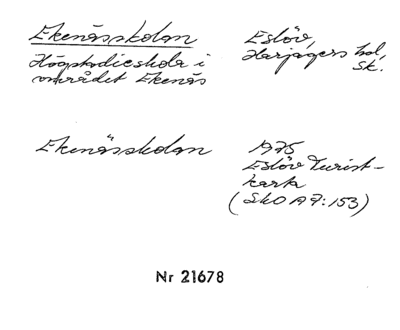 Ekenässkolan
Eslöv,
Harjagers hd,
Sk.
Högstadieskola i
området Ekenäs
Ekenässkolan
1975
Eslöv Turist-
karta
(SkO A 7:153)
Nr 21678